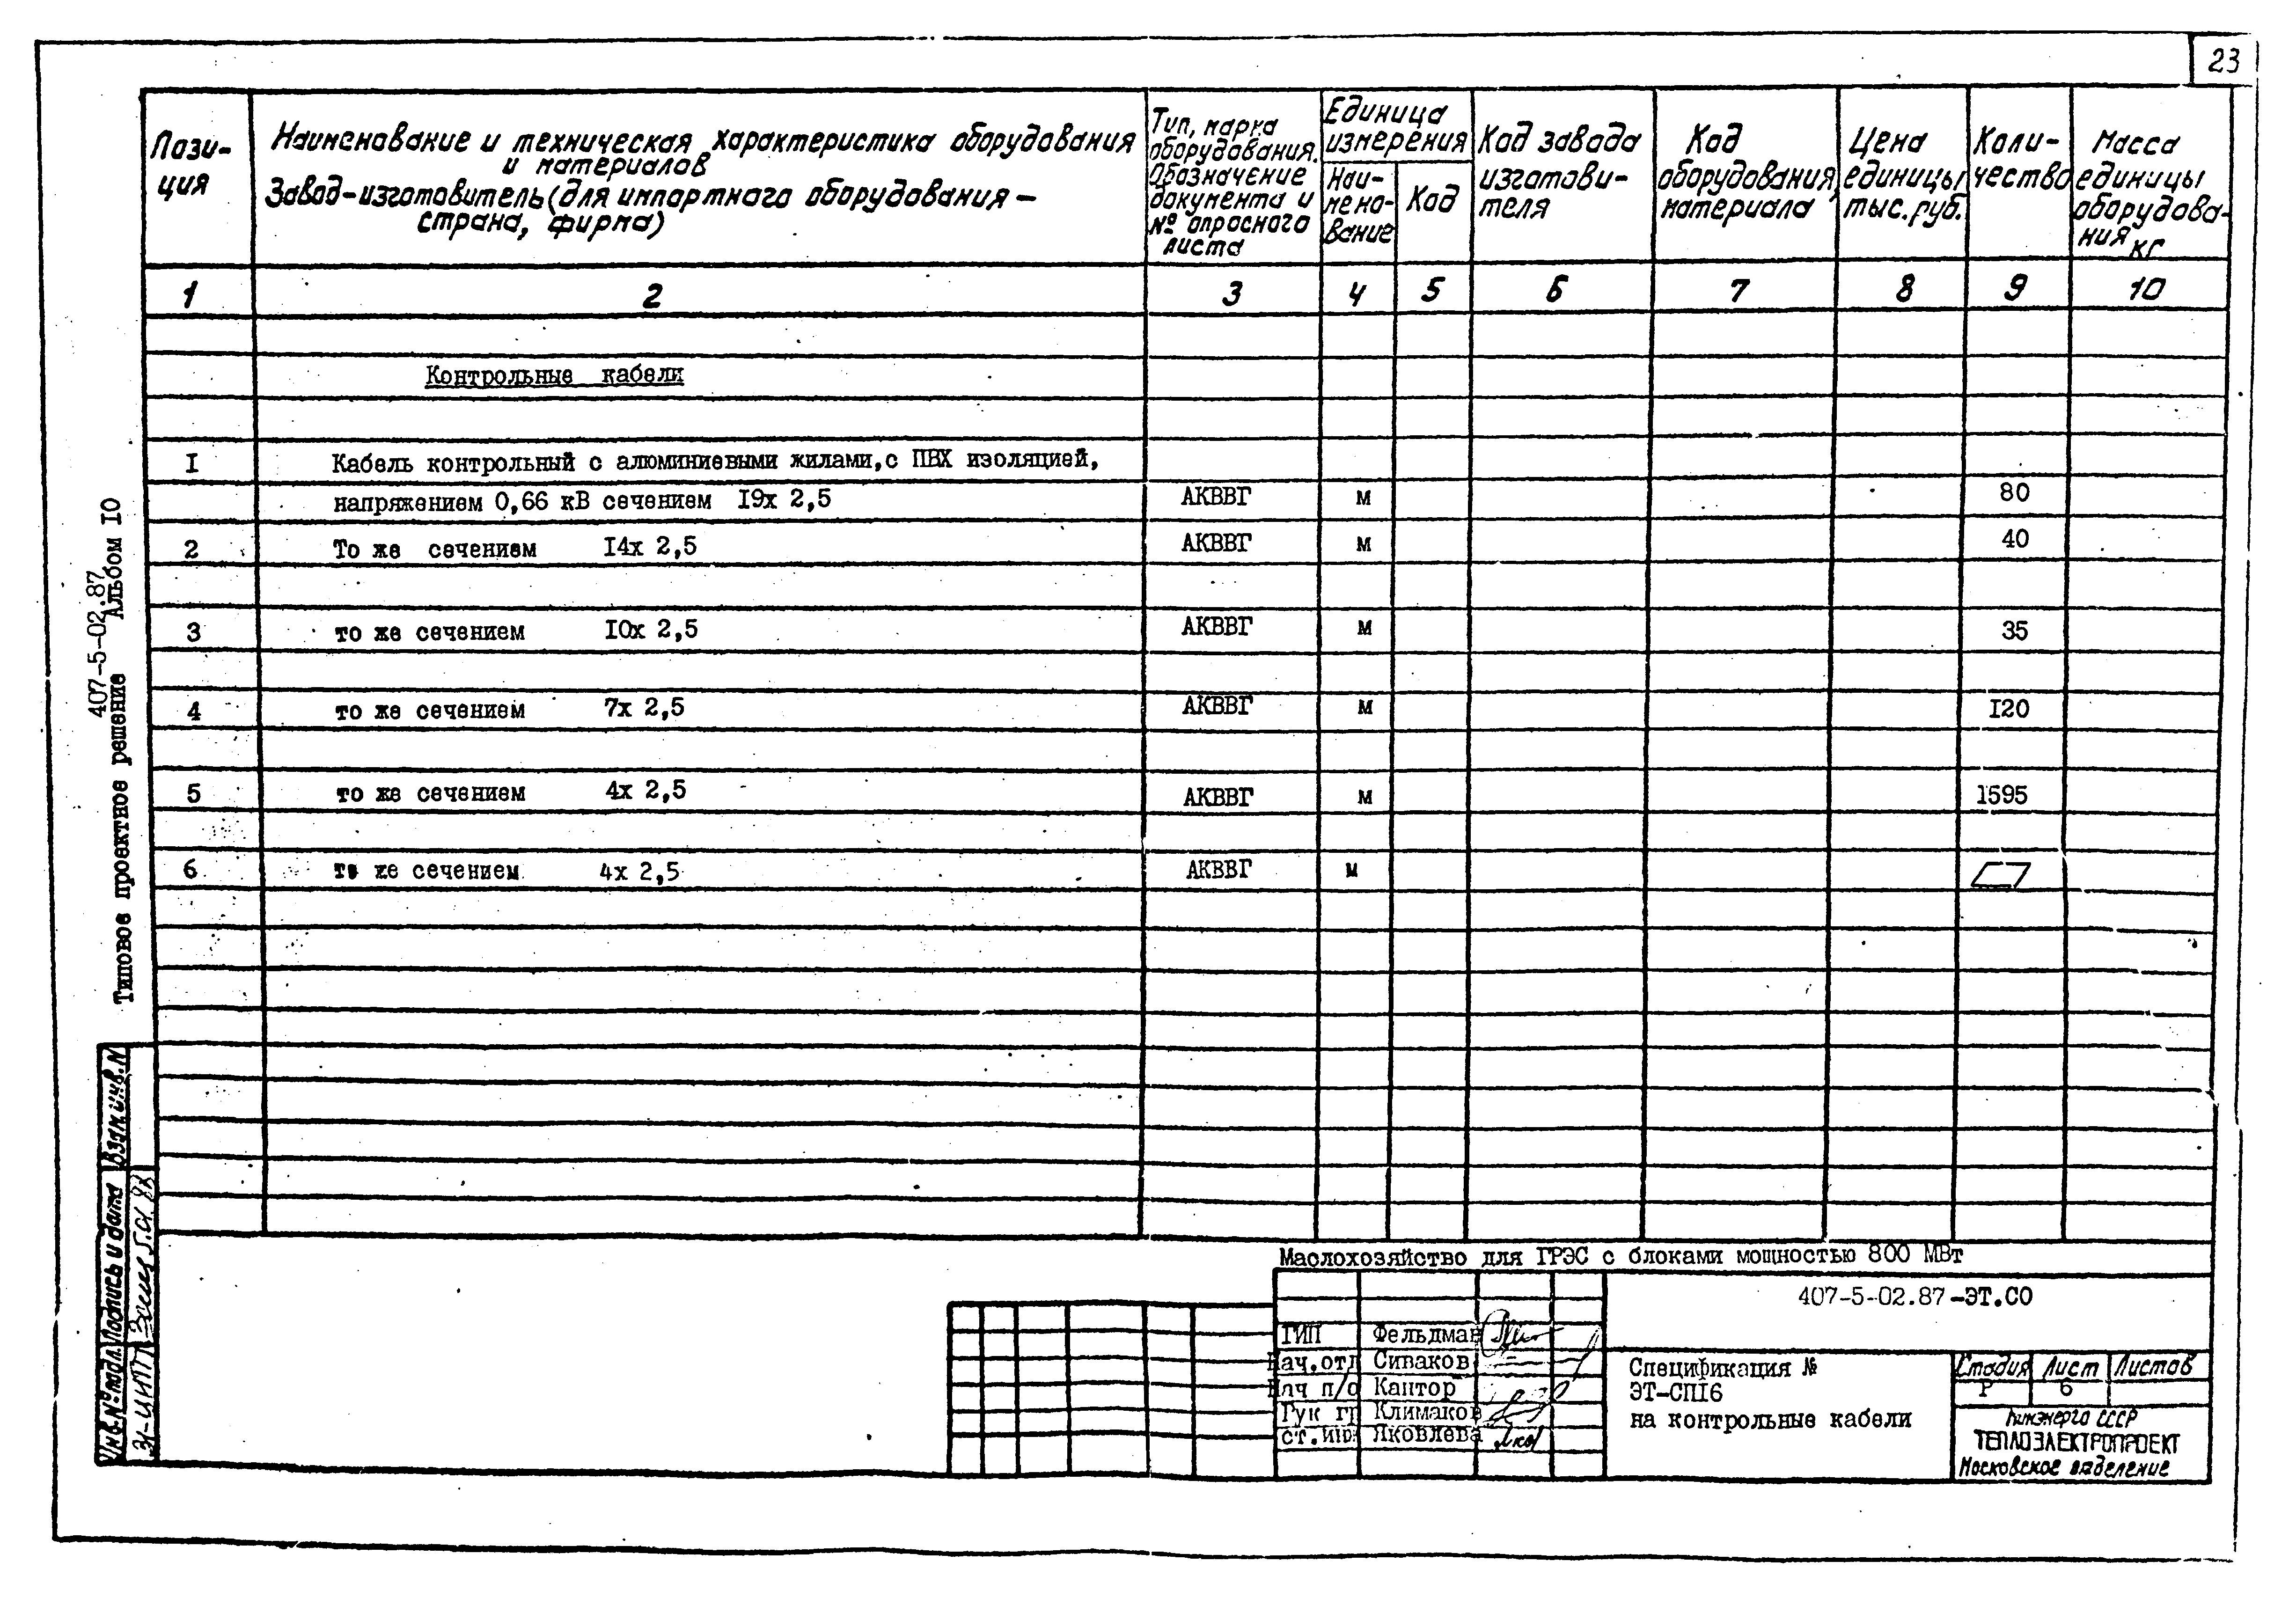 23
Пози-
ция
Наименование и техническая характеристика оборудования
и материалов
Завод-изготовитель (для импортного оборудования —
страна, фирма)
Тип, марка
оборудования.
Обозначение
документа и
№ опросного
листа
Единица
измерения
Наи-
мено-
вание
Код
Код завода
изготови-
теля
Код
оборудования,
материала
Цена
единицы
тыс.руб.
Коли-
чество
Масса
единицы
оборудова-
ния
кг
1 2 3 4 5 6 7 8 9 10
Контрольные кабели
I Кабель контрольный с алюминиевыми жилами, с ПВХ изоляцией,
напряжением 0,66 кВ сечением I9х 2,5 АКВВГ м 80
2 То же сечением I4х 2,5 АКВВГ м 40
3 то же сечением I0х 2,5 АКВВГ м 35
4 то же сечением 7х 2,5 АКВВГ м I20
5 то же сечением 4х 2,5 АКВВГ м 1595
6 то же сечением 4х 2,5 АКВВГ м
407-5-02.87
Типовое проектное решение Альбом I0
Взам.инв.N
Подпись и дата
Инв.№ подл.
Маслохозяйство для ГРЭС с блоками мощностью 800 МВт
407-5-02.87-ЭТ.СО
ГИП Фельдман
Нач.отд Сиваков
Нач п/о Кантор
Рук гр Климаков
ст.инж Яковлева
Спецификация №
ЭТ-СПI6
на контрольные кабели
Стадия Лист Листов
Р 6
Минэнерго СССР
ТЕПЛОЭЛЕКТРОПРОЕКТ
Московское отделение